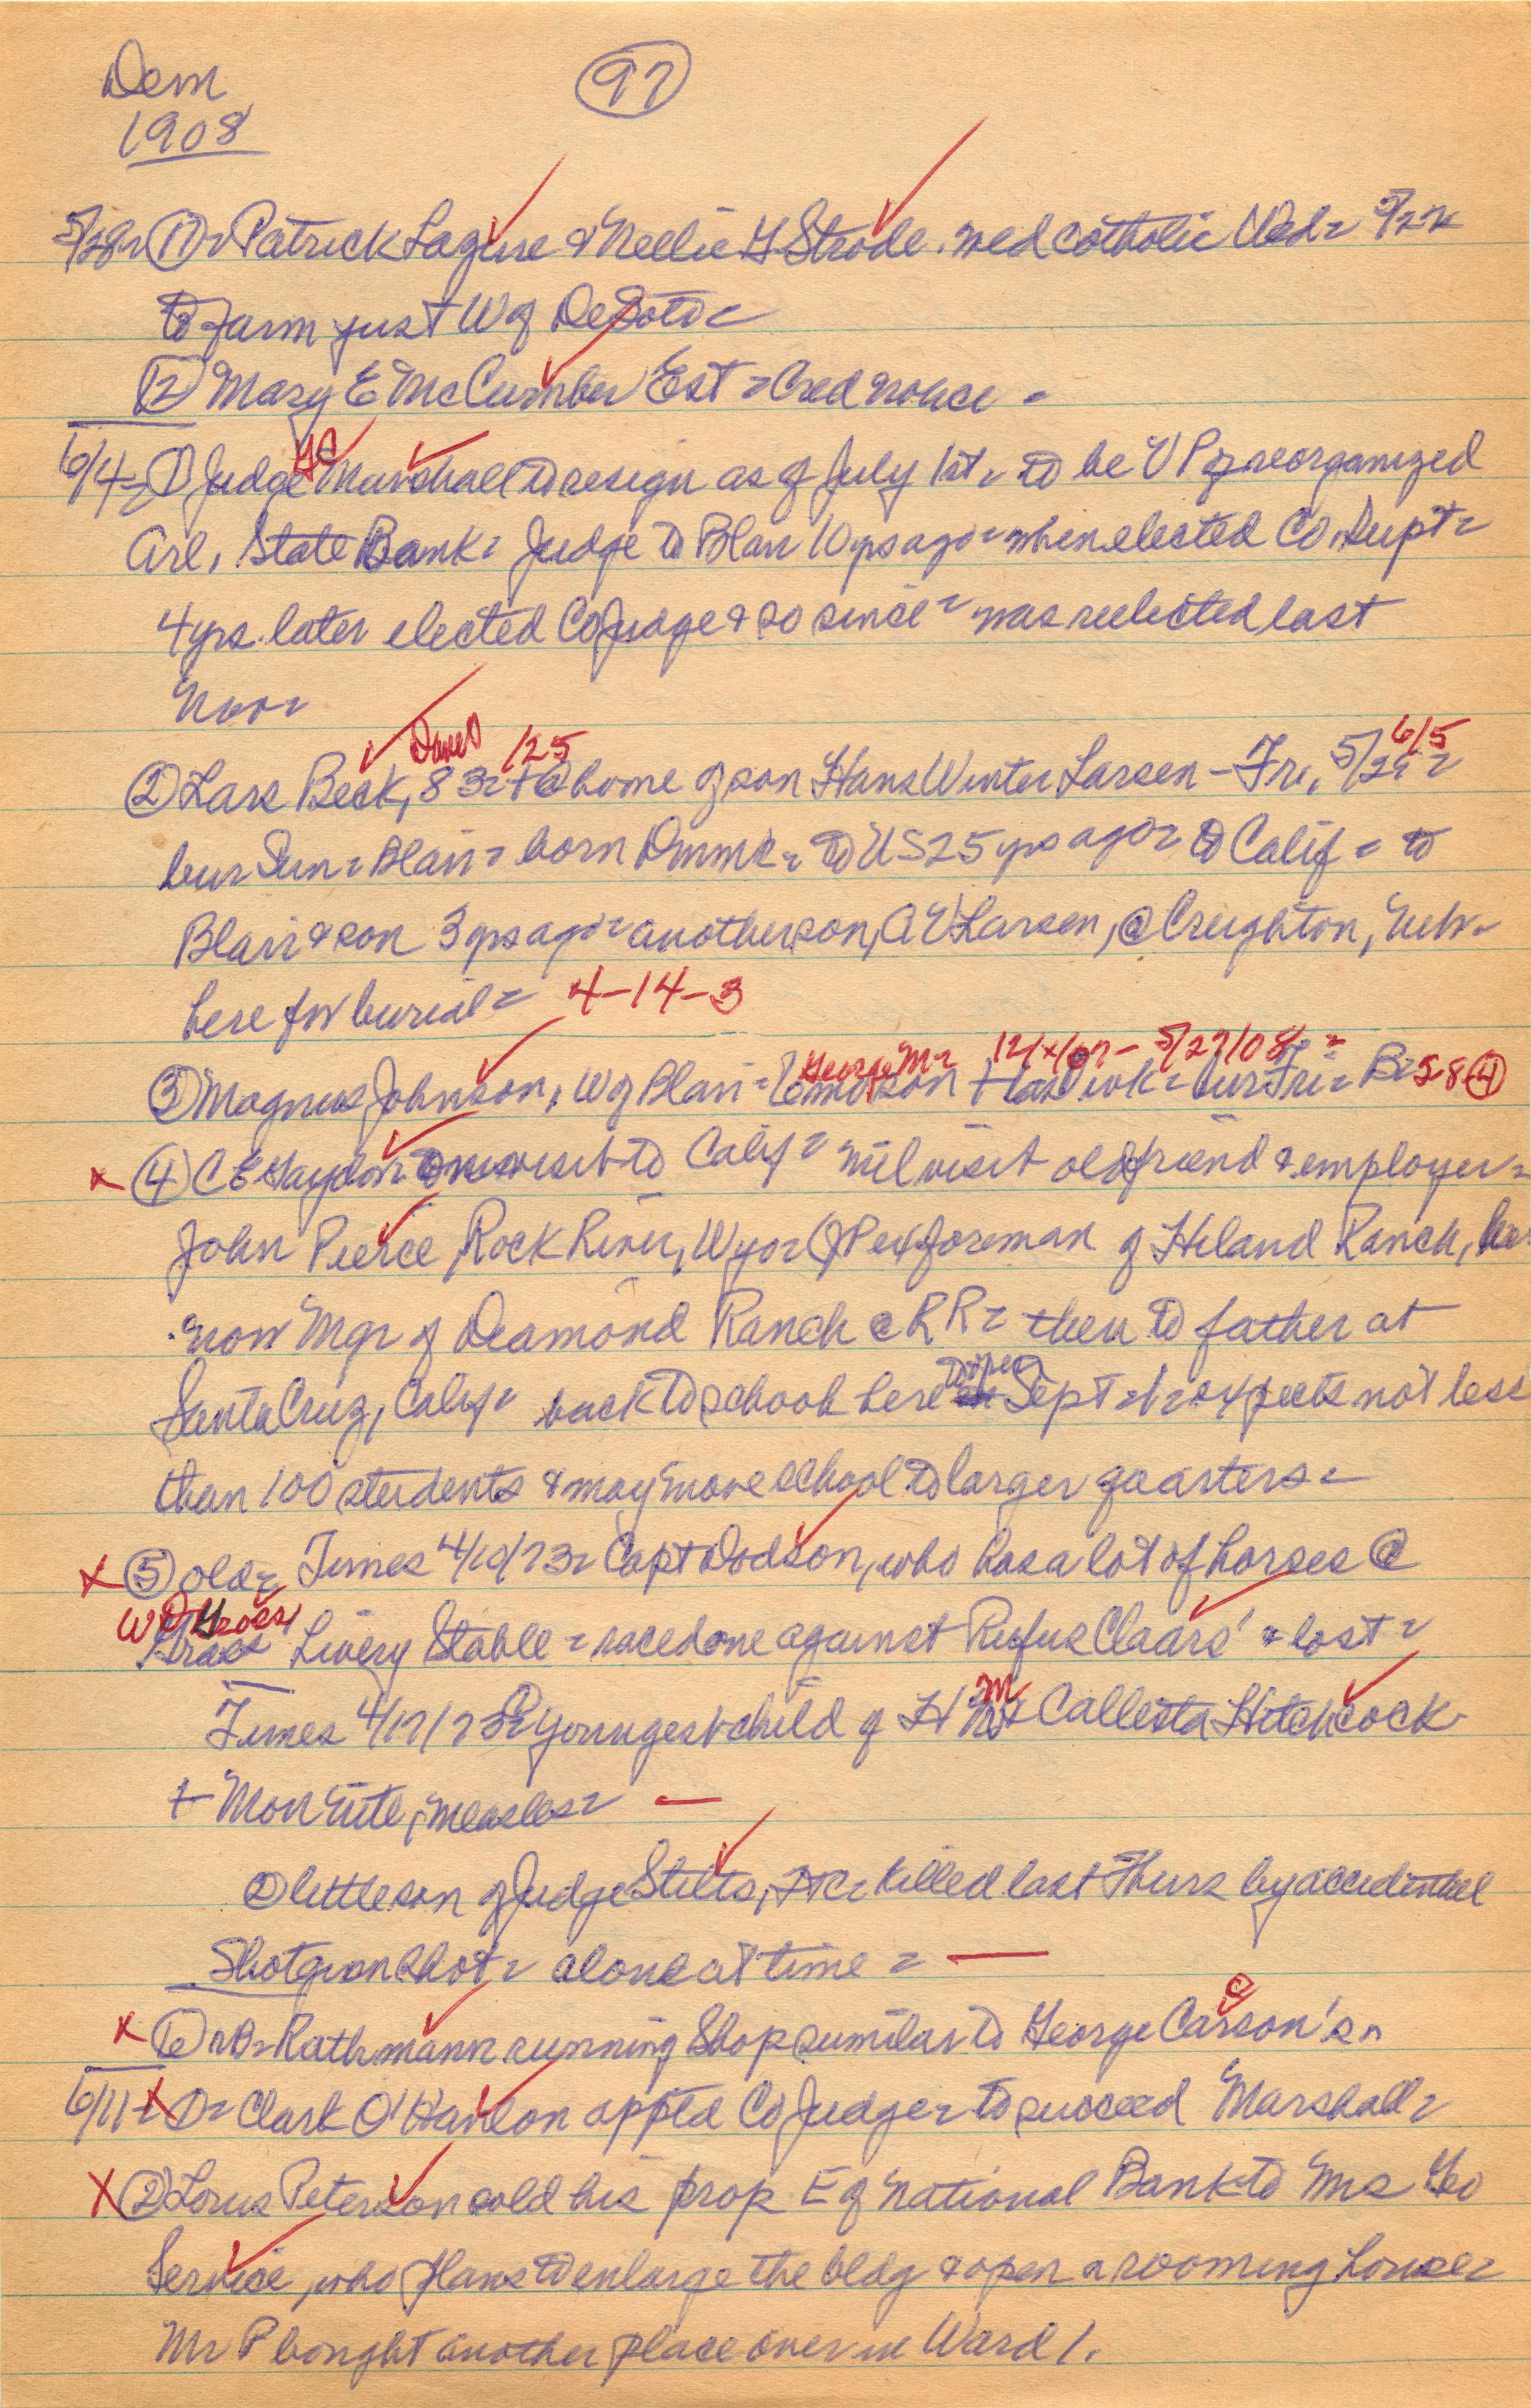 Dem
97
1908
5/28= 11= Patrick Lagure & Nellie G Strode. wed Catholic Wed= 5/27
to farm just W of DeSoto=
12 Mary E McCumber Est= Cred notice =
6/4= 1 Judge HC Marshall to resign as of July 1st= to be VP of reorganized
Arl. State Bank= Judge to Blair 10 yrs ago= when elected Co. Supt=
4 yrs. later elected Co Judge & so since= was reelected last
Nov=
Daved 1/25 6/5
2 Lars Beck, 83= + @ home of son Hans Winter Larsen - Fri, 5/29=
bur Sun= Blair= born Dnmk= to US 25 yrs ago= to Calif = to
Blair & son 3 yrs ago= another son, A V Larsen, @ Creighton, Neb=
here for burial= 4-14-3
George M= 12/x/07 - 5/27/08 =
3 Magnus Johnson, W of Blair= 6 mo son + last wk= bur Fri= B= 58 4
x 4 C E Haydon= to visit to Calif= will visit old friend & employer=
John Pierce, Rock River, Wyo= JP ex foreman of Hiland Ranch, her
now Mgr of Diamond Ranch @ RR= then to father at
Santa Cruz, Calif= back to school here to open Sept 1= expects not less
than 100 students & may move school to larger quarters=
x 5 old= Times 4/10/73= Capt Dodson, who has a lot of horses @
W D Gross'
Livery Stable= raced one against Rufus Claars' & lost=
Times 4/17/73= youngest child of H M & Callista Hitchcock
+ Mon nite, measles= —
2 little son of Judge Stilts, FtC= killed last Thurs by accidental
Shotgun shot= alone at time = —
x 6 RB= Rathmann running Shop similar to George Carson's=
6/11= x 1= Clark O'Hanlon appted Co Judge= to succeed Marshall=
x 2 Lorus Peterson sold his prop E of National Bank to Mrs Geo
Service, who plans to enlarge the bldg & open a rooming house=
Mr P bought another place over in Ward 1.